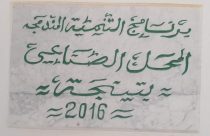 برنامج التنمية المندمجة
المحل الصناعي
بتينجة
=2016=